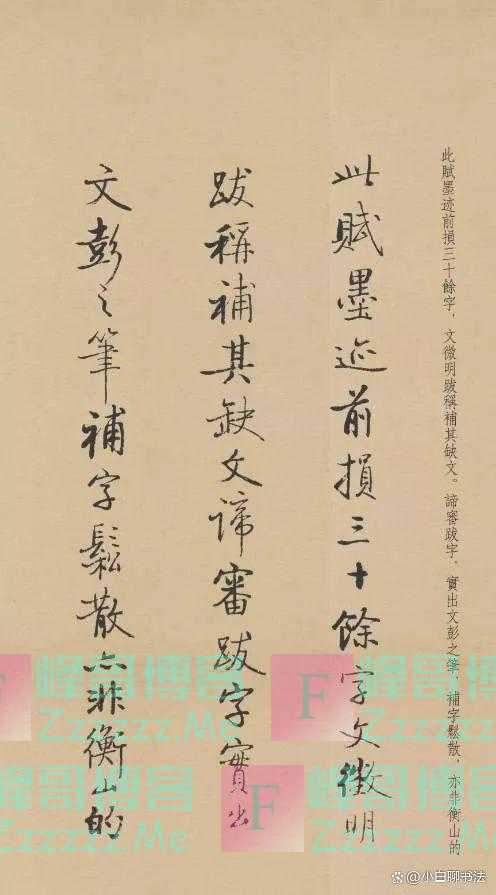 此賦墨迹前損三十餘字，文徵明跋稱補其缺文。諦審跋字，實出文彭之筆，補字鬆散，亦非衡山的
此賦墨迹前損三十餘字文徵明
跋稱補其缺文諦審跋字實出
文彭之筆補字鬆散亦非衡山的
峰哥博客
Zzzzzz.Me
F
峰哥博客
Zzzzzz.Me
峰哥博客
Zzzzzz.Me
F
峰哥博客
Zzzzzz.Me
@小白聊书法